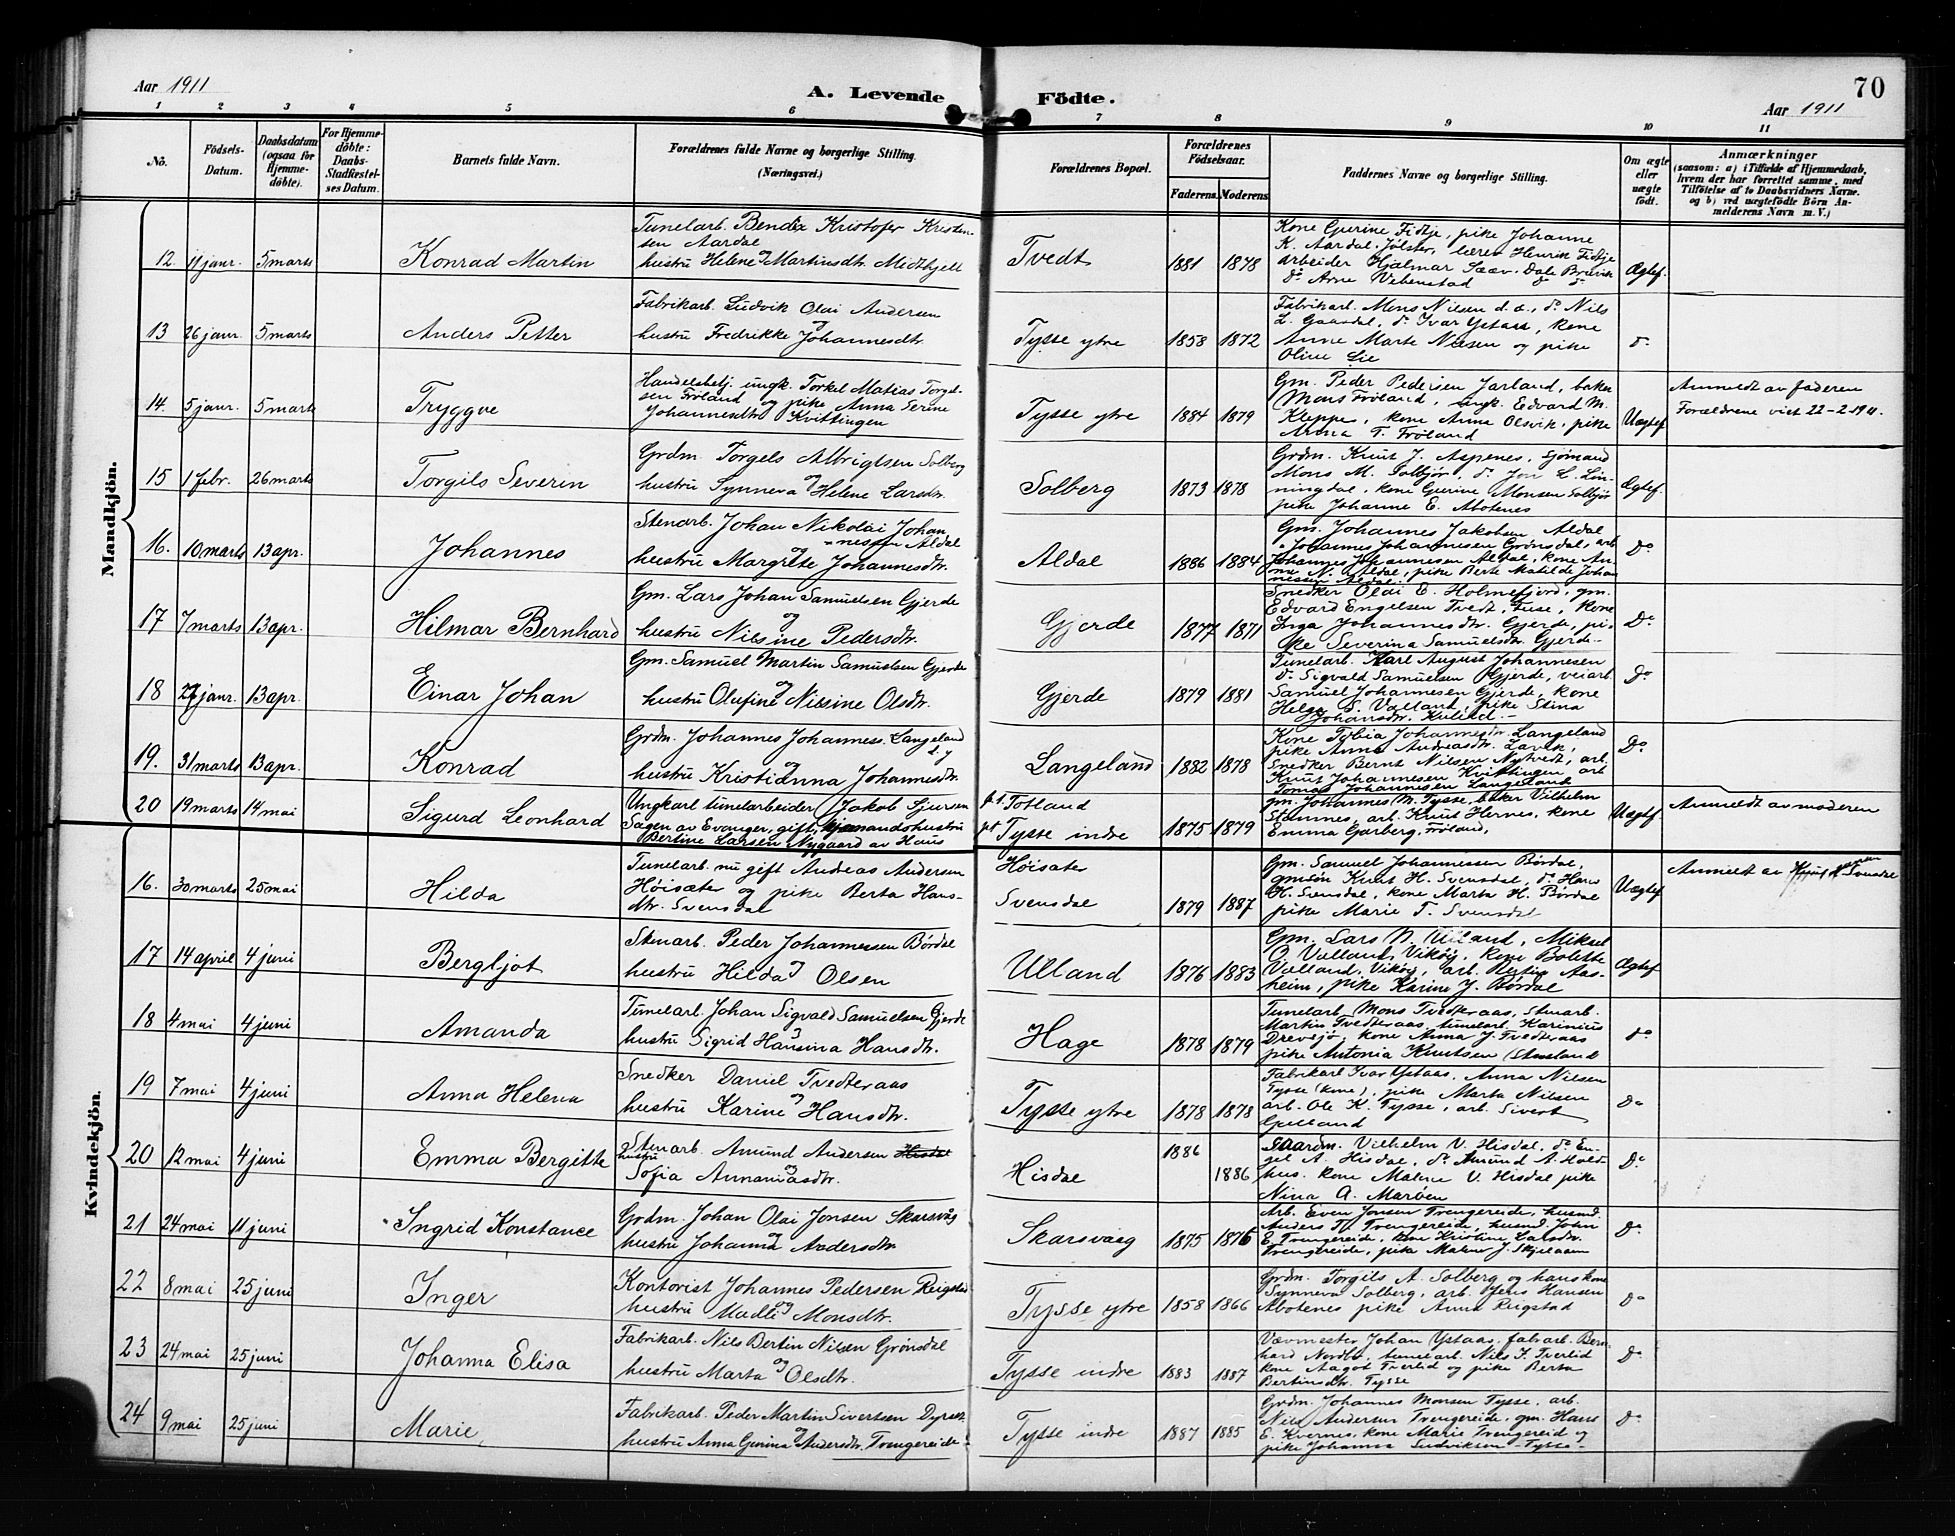 Aar 1911
A. Levende Födte.
Aar 1911
70
1 2 3 4 5 6 7 8 9 10 11
No.
Födsels-
Datum.
Daabsdatum
(ogsaa for
Hjemme-
döbte).
For Hjemme-
döbte:
Daabs-
Stadfæstel-
ses Datum.
Barnets fulde Navn.
Forældrenes fulde Navne og borgerlige Stilling.
(Næringsvei.)
Forældrenes Bopæl.
Forældrenes
Födselsaar.
Faderens. Moderens.
Faddernes Navne og borgerlige Stilling.
Om ægte
eller
uægte
födt.
Anmærkninger
(saasom: a) i Tilfælde af Hjemmedaab,
hvem der har forrettet samme, med
Tilföielse af to Daabsvidners Navne.
og b) ved uægtefödte Börn An-
melderens Navn m. V.)
Mandkjön.
12. 11 janr. 5 marts Konrad Martin
Tunelarb. Bendix Kristofer Kristen-
sen Aardal og
hustru Helene Martinsdtr. Midtkjell
Tvedt 1881 1878
Kone Gjerine Fidtje, pike Johanne
K. Aardal, Jölster, lærer Henrik Fidtje
arbeider Hjalmar Saav. Dale Bruvik
do Arne Vebenstad do do
Ægtef.
13 26 janr. 5 marts Anders Petter
Fabrikarb. Ludvik Olai Andersen
og
hustru Fredrikke Johannesdtr.
Tysse ytre 1858 1872
Fabrikarb. Mons Nilsen d.æ., do Nils
L. Gaasdal, do Ivar Ystaas, kone
Anne Marte Nilsen og pike
Oline Lie
do
14. 5 janr. 5 marts Tryggve
Handelsbetj. ungk. Torkel Matias Torgil-
sen Fröland og pike Anna Serine
Johannesdtr. Kvittingen
Tysse ytre 1884 1879
Gm. Peder Pedersen Jarland, baker
Mons Fröland, ungk. Edvard M.
Kleppe, kone Anna Olsvik, pike
Anna T. Fröland
Uægtef.
Anmeldt av faderen
Forældrene viet 22-2-1911.
15 1 febr. 26 marts Torgils Severin
Grdm. Torgels Albrigtsen Solberg
og
hustru Synneva Helene Larsdtr.
Solberg 1873 1878
Grdm. Knut J. Aspenes, sjömand
Mons M. Solbjör, do Jon L. Lön-
ningdal, kone Gjerine Monsen Solbjör
pike Johanne E. Abotenes
Ægtef.
16. 10 marts 13 apr. Johannes
Stenarb. Johan Nikolai Johan
nessen Aldal
og
hustru Margrete Johannesdtr.
Aldal 1886 1884
Gm. Johannes Jakobsen Aldal
Johannes Johannesen Grönsdal, arb.
Johannes Johannesen Aldal, kone An-
na N. Aldal, pike Berte Matilde Johan
nessen Aldal.
Do
17 7 marts 13 apr. Hilmar Bernhard
Gm. Lars Johan Samuelsen Gjerde
og
hustru Nilsine Pedersdtr.
Gjerde 1877 1871
Snedker Olai E. Holmefjord, gm.
Edvard Engelsen Tvedt, Fuse, kone
Inga Johannesdtr. Gjerde, pi-
ke Severina Samuelsdtr. Gjerde.
Do
18 27 janr. 13 apr. Einar Johan
Gm. Samuel Martin Samuelsen Gjerde
og
hustru Olufine Nilsine Olsdtr.
Gjerde 1879 1881
Tunelarb. Karl August Johannesen
do Sigvald Samuelsen Gjerde, veiarb.
Samuel Johannesen Gjerde, kone
Helga S. Valland, pike Stina
Johansdtr.
Do
19. 31 marts 13 apr. Konrad
Grdm. Johannes Johanness. Langeland
d.y
og
hustru Kristianna Johannesdtr.
Langeland 1882 1878
Kone Tobia Johannesdtr. Langeland
pike Anna Andreasdtr. Lavik,
Snedker Bernt Nilsen Nytvedt, arb.
Knut Johannesen Kvittingen arb
Tomas Johannesen Langeland
Do
20 19 marts 14 mai Sigurd Leonhard
Ungkarl tunelarbeider Jakob Sjursen
Sagen av Evanger, gift, hustru
Bertine Larsen Nygaard av Haus
pt. Totland
pt Tysse indre 1875 1879
gm. Johannes M. Tysse, baker Vilhelm
Stamnes, arb. Knut Hernes, kone
Emma Garberg, Fröland,
Uægtef
Anmeldt av moderen
Kvindekjön.
16. 30 marts 25 mai Hilda
Tunelarb. nu gift Andreas Andersen
Höisæter og pike Berta Hans-
dtr. Svensdal
Höisæter
Svensdal 1879 1887
Gm. Samuel Johannessen Bördal,
gmsön Knut H. Svensdal, do Hans
H. Svensdal, kone Marta H. Bördal
pike Marie T. Svensdal
Uægtef
Anmeldt av Svensdal
17 14 april 4 juni Bergljot
Stenarb. Peder Johannessen Bördal
og
hustru Hilda Olsen
Ulland 1876 1883
Gm. Lars N. Ulland, Mikael
O. Valland, Vikör, kone Bolette
Valland, Vikör, arb. Bertin Aas-
heim, pike Karine J. Bördal
Ægtef
18 4 mai 4 juni Amanda
Tunelarb. Johan Sigvald Samuelsen Gjerde
og
hustru Sigrid Hansina Hansdtr.
Hage 1878 1879
Tunelarb Mons Tvedteraas, stenarb.
Martin Tvedteraas, tunelarb. Karinius
Drevsjö, kone Anna J. Tvedteraas
pike Antonia Knutsen
do
19 7 mai 4 juni Anna Helena
Snedker Daniel Tvedteraas
og
hustru Karine Hansdtr.
Tysse ytre 1878 1878
Fabrikarb Ivar Ystaas, Anna Nilsen
Tysse (kone), pike Marta Nilsen
arb. Ole K. Tysse, arb. Sivert
Gulland
Do
20 12 mai 4 juni Emma Bergitte
Stenarb. Amund Andersen Hisdal
hustru og
Sofia Annamasdtr.
Hisdal 1886 1886
Gaardm. Vilhelm V. Hisdal, do En-
gel A. Hisdal, do Amund A. Holdt-
hus, kone Malene V. Hisdal pike
Nina A. Maröen
Do
21 24 mai 11 juni Ingrid Konstance
Grdm. Johan Olai Jonsen Skarsvåg
og
hustru Johanna Andersdtr.
Skarsvaag 1875 1876
Arb. Even Jonsen Trengereide, husmd
Anders N. Trengereide, husmd. John
E. Trengereide, kone Kristine Larsdtr.
Trengereide, pike Malene J. Skjelaaen
Do
22 8 mai 25 juni Inger
Kontorist Johannes Pedersen Reigstad
og
hustru Madli Monsdtr.
Tysse ytre 1858 1866
Grdm. Torgils A. Solberg og hans kone
Synneva Solberg, arb. Jens Hansen
Abotenes pike Anna Reigstad
Do
23 24 mai 25 juni Johanna Elisa
Fabrikarb. Nils Bertin Nilsen Grönsdal
og
hustru Marta Olsdtr.
Tysse indre 1883 1887
Vævmester Johan Ystaas, fabrarb. Bern-
hard Nordbö, tunelarb. Nils K. Tverlid
kone Aagot Tverlid og pike Berta
Bertinsdtr. Tysse
Do
24 9 mai 25 juni Marie,
Fabrikarb. Peder Martin Sivertsen
og
hustru Anna Gurina Andersdtr. Trengereide
Tysse indre 1887 1885
Grdm. Johannes Monsen Tysse, arb.
Nils Andersen Trengereide, gm. Hans
E. Kvernes, kone Marie Trengereid og
pike Johanna Ludviksen Tysse
Do